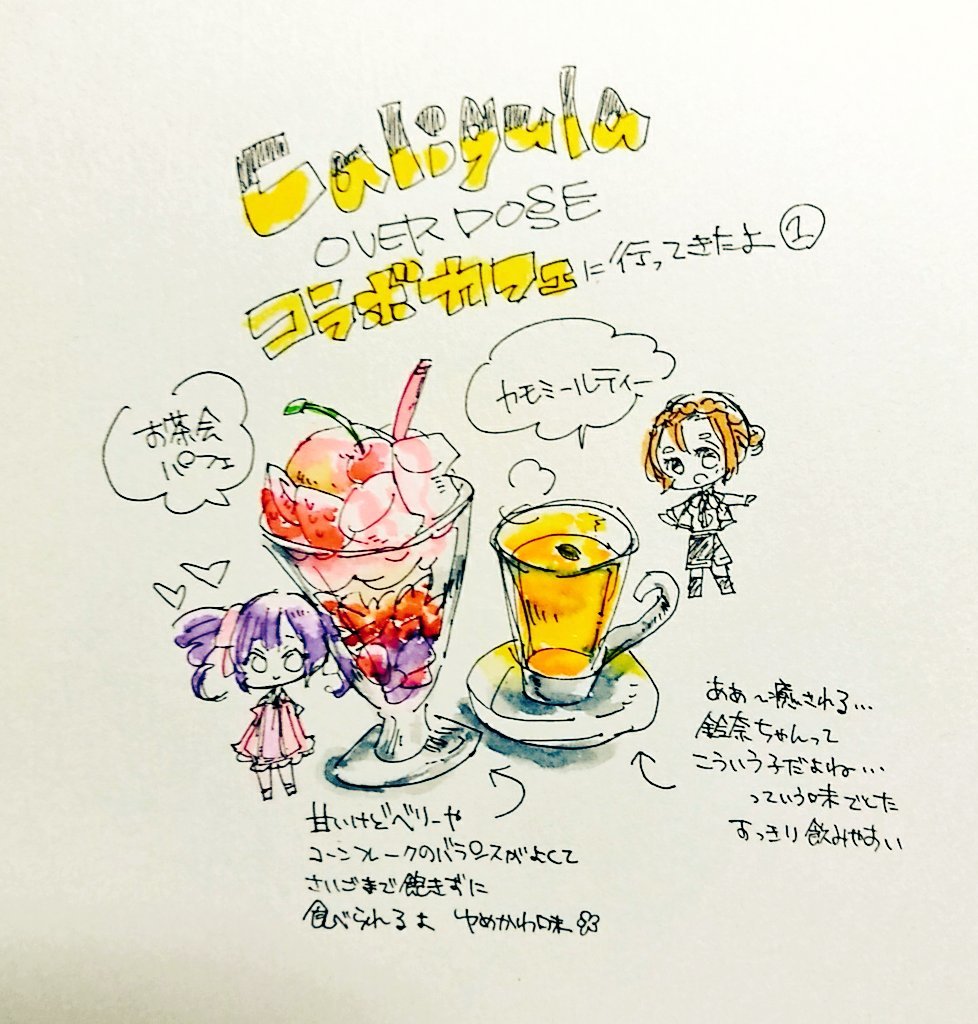 Caligula
OVER DOSE
コラボカフェに行ってきたよ①
お茶会
パフェ
カモミールティー
甘いけどベリーや
コーンフレークのバランスがよくて
さいごまで飽きずに
食べられるよ ゆめかわ味
ああ~癒される…
鈴奈ちゃんって
こういう子だよね…
っていう味でした
すっきり飲みやすい